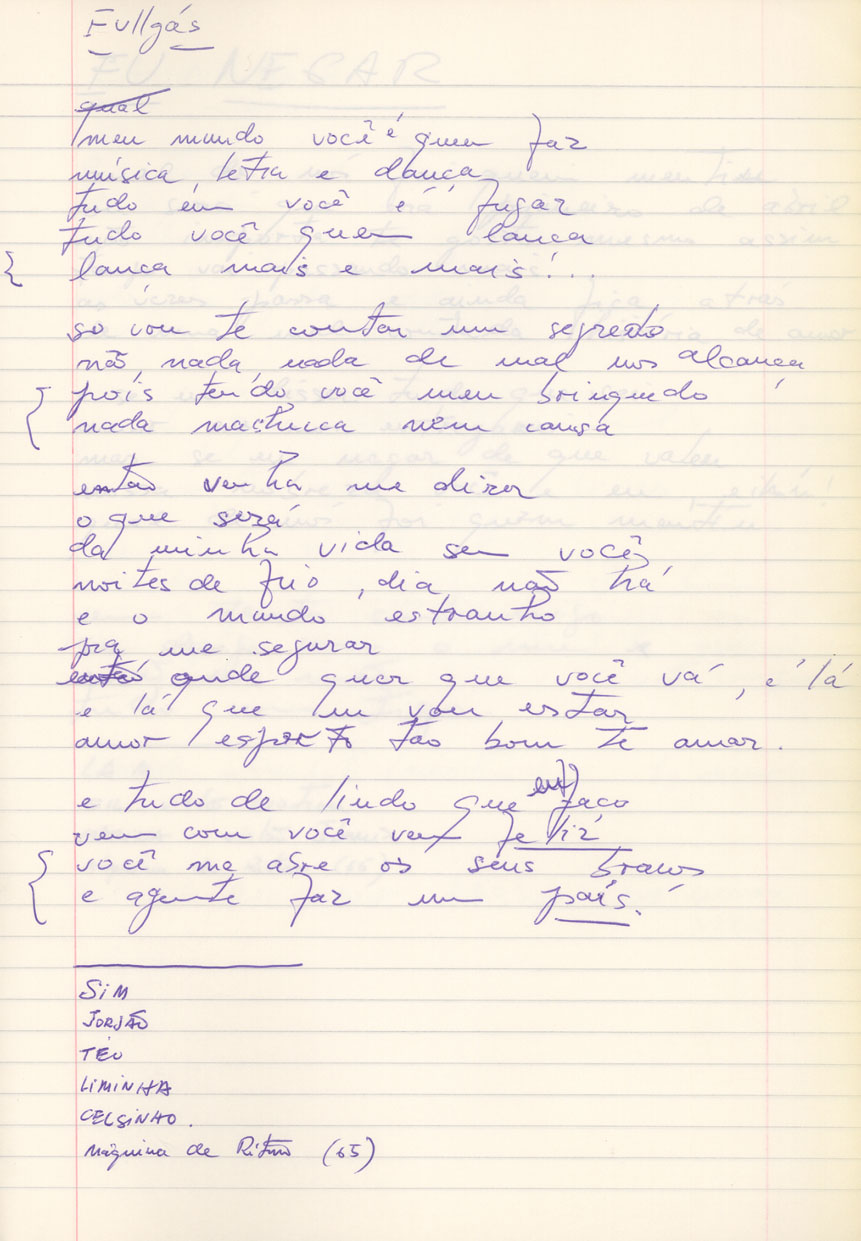 Fullgás
qual
meu mundo você é quem faz
música, letra e dança
tudo em você é fugaz
tudo você quem lança
lança mais e mais!...
só vou te contar um segredo
não, nada, nada de mal nos alcança
pois tendo você meu brinquedo
nada machuca nem cansa
então venha me dizer
o que será
da minha vida sem você
noites de frio, dia não há
e o mundo estranho
pra me segurar
então onde quer que você vá, é lá
e lá que eu vou estar
amor esperto tão bom te amar.
e tudo de lindo que eu faço
vem com você vem feliz
você me abre os seus braços
e agente faz um país.
SiM
JORJÃO
TÉO
LiMiNHA
CELSiNHO.
Máquina de Ritmo (65)